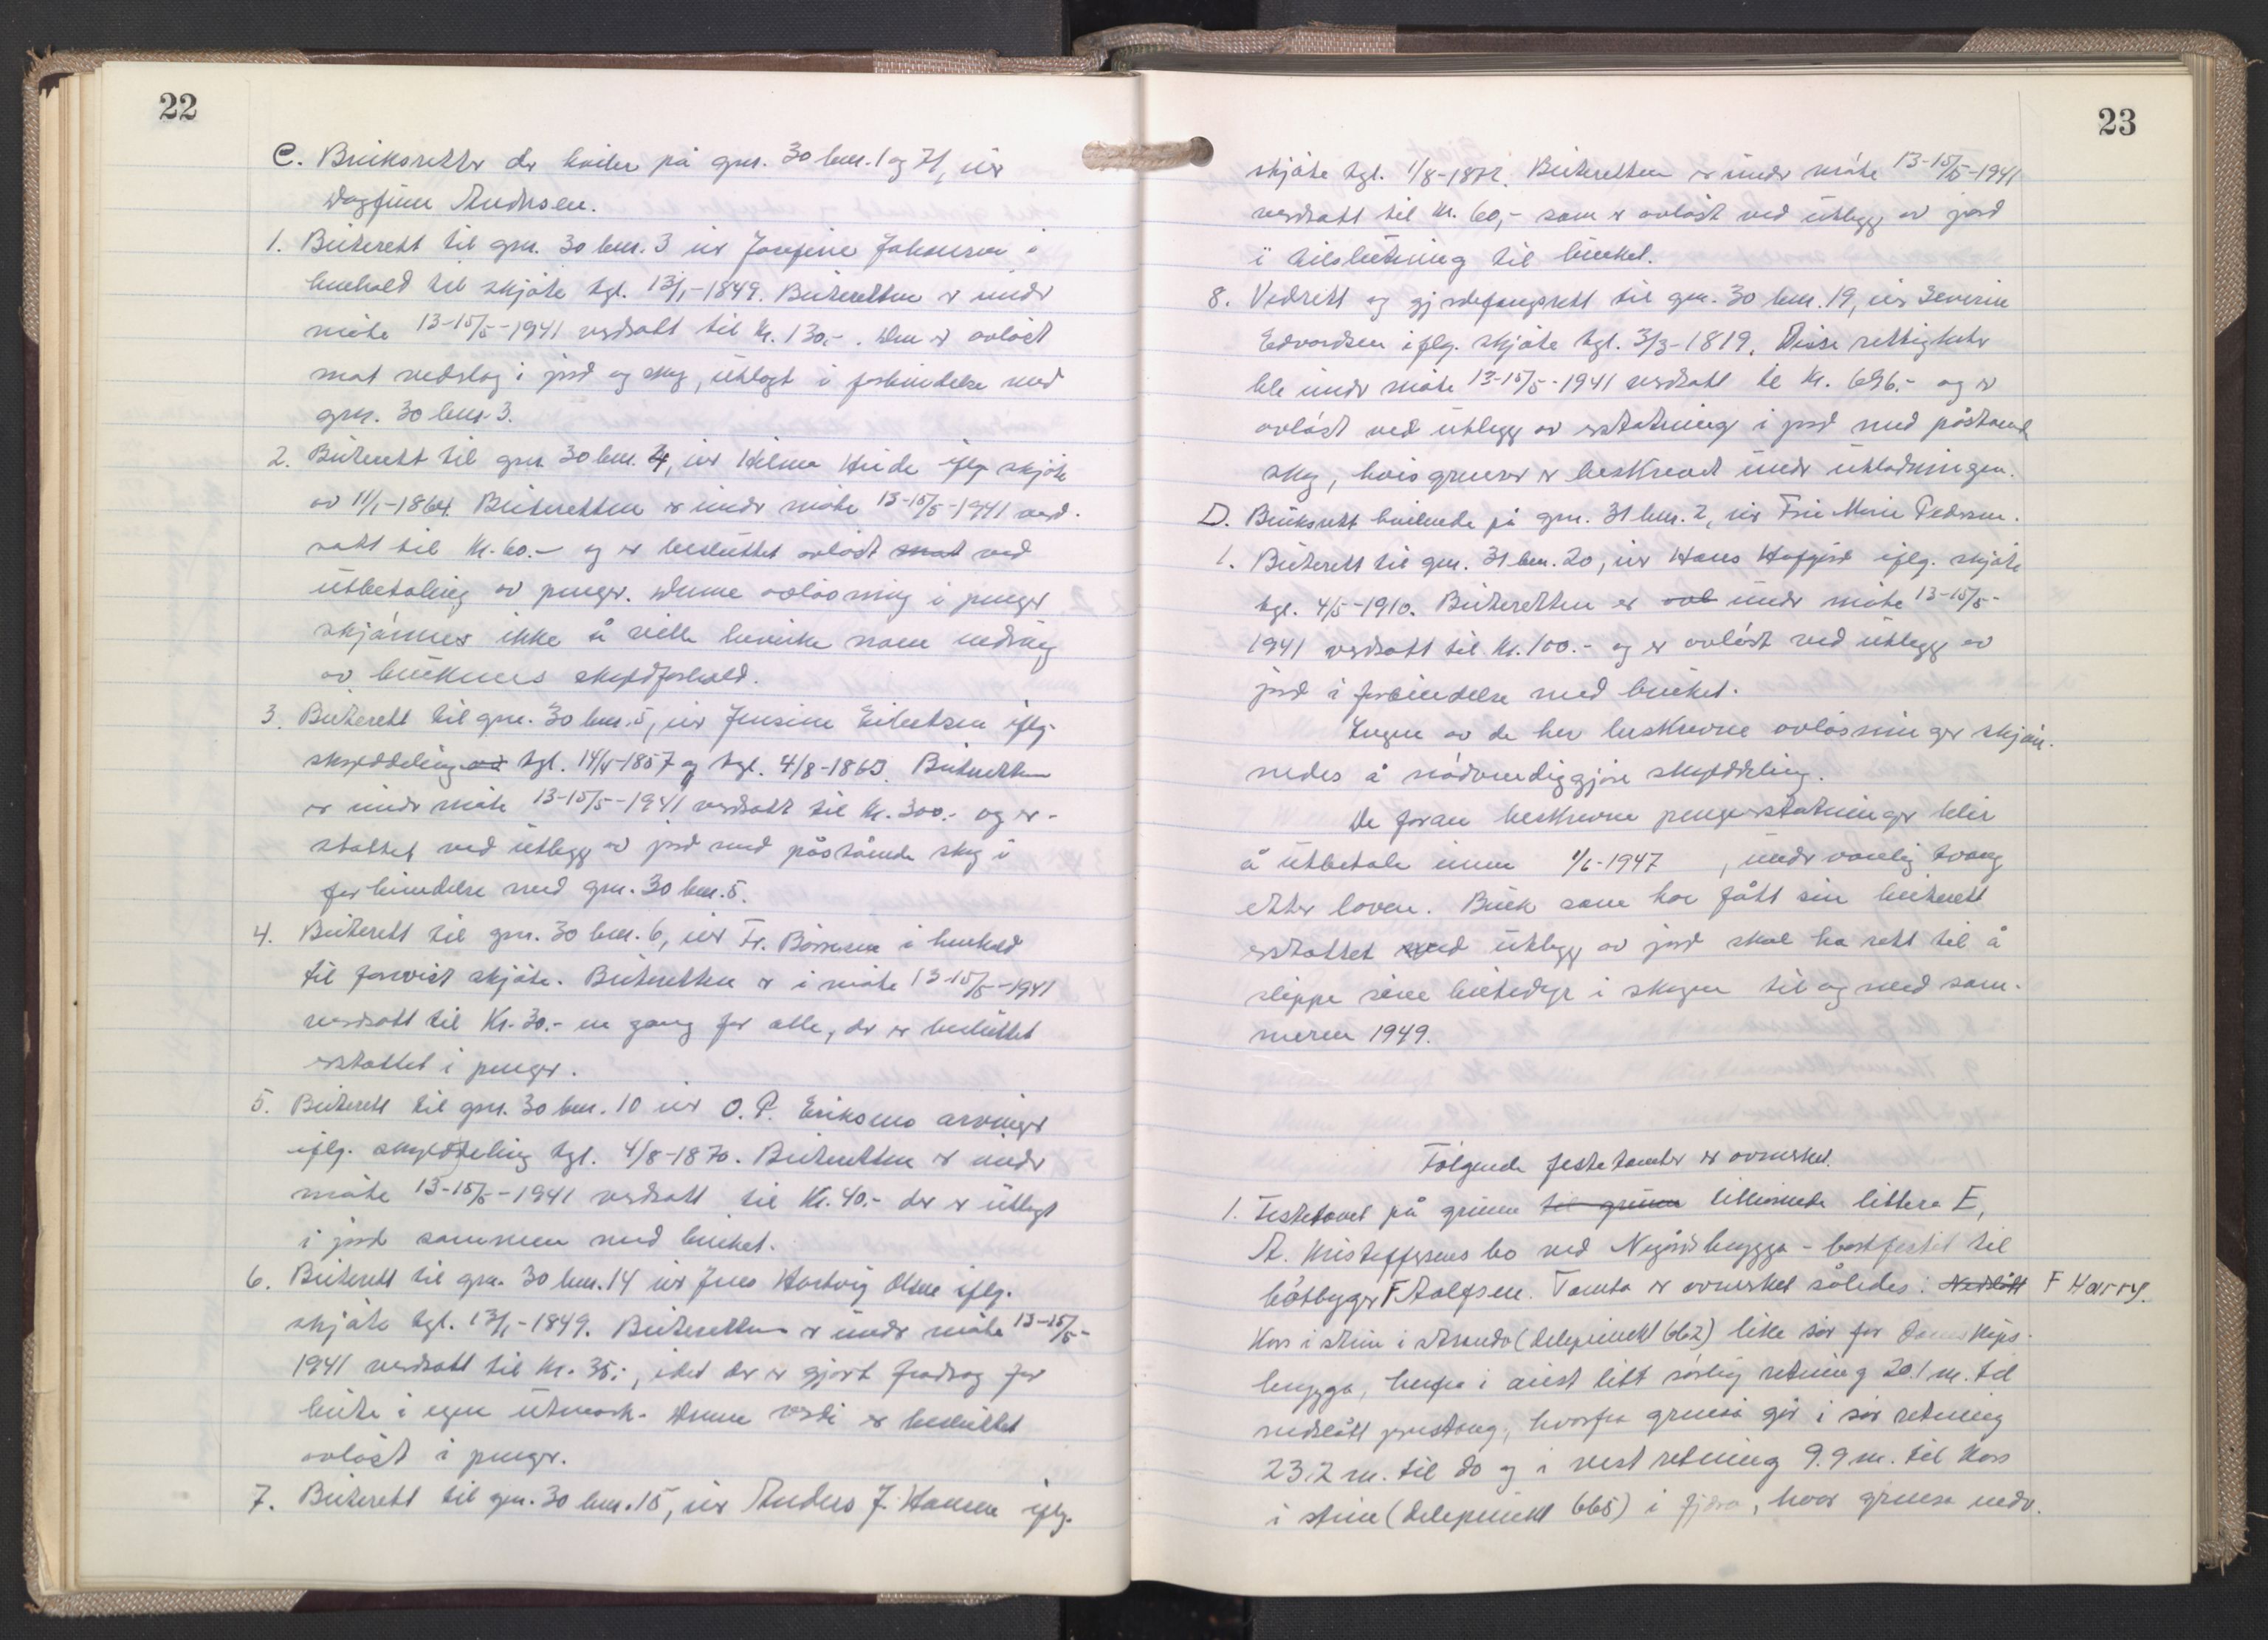 22
C. Bruksretter der hviler på gnr. 30 bnr. 1 og 71, eier
Dagfinn Andersen.
1. Beiterett til gnr. 30 bnr. 3 eier Josefine Johansen i
henhold til skjøte tgl. 13/1-1849. Beiteretten er under
møte 13-15/5-1941 verdsatt til kr. 130.-. Den er avløst
mot vederlag i jord og skog, utlagt i forbindelse med
gnr. 30 bnr. 3.
2. Beiterett til gnr. 30 bnr. 4, eier Hilma Heide iflg. skjøte
av 11/1-1864. Beiteretten er under møte 13-15/5-1941 verd-
satt til kr. 60.- og er besluttet avløst mot ved
utbetaling av penger. Denne avløsning i penger
skjønnes ikke å ville bevirke noen endring
av brukenes skyldforhold.
3. Beiterett til gnr. 30 bnr. 5, eier Jensine Eilertsen iflg.
skylddeling av tgl. 14/4-1857 og tgl. 4/8-1863. Beiteretten
er under møte 13-15/5-1941 verdsatt til kr. 300.- og er-
stattet ved utlegg av jord med påstående skog i
forbindelse med gnr. 30 bnr. 5.
4. Beiterett til gnr. 30 bnr. 6, eier Fr. Børresen i henhold
til forevist skjøte. Beiteretten er i møte 13-15/5-1941
verdsatt til Kr. 30.- en gang for alle, der er besluttet
erstattet i penger.
5. Beiterett til gnr. 30 bnr. 10 eier O. P. Eriksens arvinger
iflg. skylddeling tgl. 4/8-1870. Beiteretten er under
møte 13-15/5-1941 verdsatt til Kr. 40.- der er utlagt
i jord sammen med bruket.
6. Beiterett til gnr. 30 bnr. 14 eier Jens Hartvig Olsen iflg.
skjøte tgl. 13/1-1849. Beiteretten er under møte 13-15/5-
1941 verdsatt til kr. 35.-, idet der er gjort fradrag for
beite i egen utmark. Denne verdi er besluttet
avløst i penger.
7. Beiterett til gnr. 30 bnr. 15, eier Anders J. Hansen iflg.
23
skjøte tgl. 1/8-1872. Beiteretten er under møte 13-15/5-1941
verdsatt til kr. 60,- som er avløst ved utlegg av jord
i tilslutning til bruket.
8. Vedrett og gjerdefangsrett til gnr. 30 bnr. 19, eier Severin
Edvardsen iflg. skjøte tgl. 3/3-1819. Disse rettigheter
ble under møte 13-15/5-1941 verdsatt til kr. 696.- og er
avløst ved utlegg av erstatning i jord med påstående
skog, hvis grenser er beskrevet under utlodningen.
D. Bruksrett hvilende på gnr. 31 bnr. 2, eier Frie Marie Pedersen.
1. Beiterett til gnr. 31 bnr. 20, eier Hans Hofgård iflg. skjøte
tgl. 4/5-1910. Beiteretten er avl under møte 13-15/5-
1941 verdsatt til kr. 100.- og er avløst ved utlegg av
jord i forbindelse med bruket.
Ingen av de her beskrevne avløsninger skjøn-
nedes å nødvendiggjøre skylddeling.
De foran beskrevne pengeerstatninger blir
å utbetale innen 1/6-1947, under vanlig tvang
etter loven. Bruk som har fått sin beiterett
erstattet med utlegg av jord skal ha rett til å
slippe sine beitedyr i skogen til og med som-
meren 1949.
Følgende festetomter er avmerket.
1. Festetomt på grunn til grunn tilliggende littera E,
A. Kristoffersens bo ved Nygårdsbrygga - bortfestet til
båtbygger F Adolfsen. Tomta er avmerket således: Nedslått F Harry.
Kors i stein i stranda (delepunkt 662) like sør for Dampskips-
brygga, herfra i aust litt sørlig retning 20.1 m. til
nedslått jernstang, hvorfra grensa går i sør retning
23.2 m. til do og i vest retning 9.9 m. til kors
i stein (delepunkt 665) i fjæra, hvor grensa nedv.